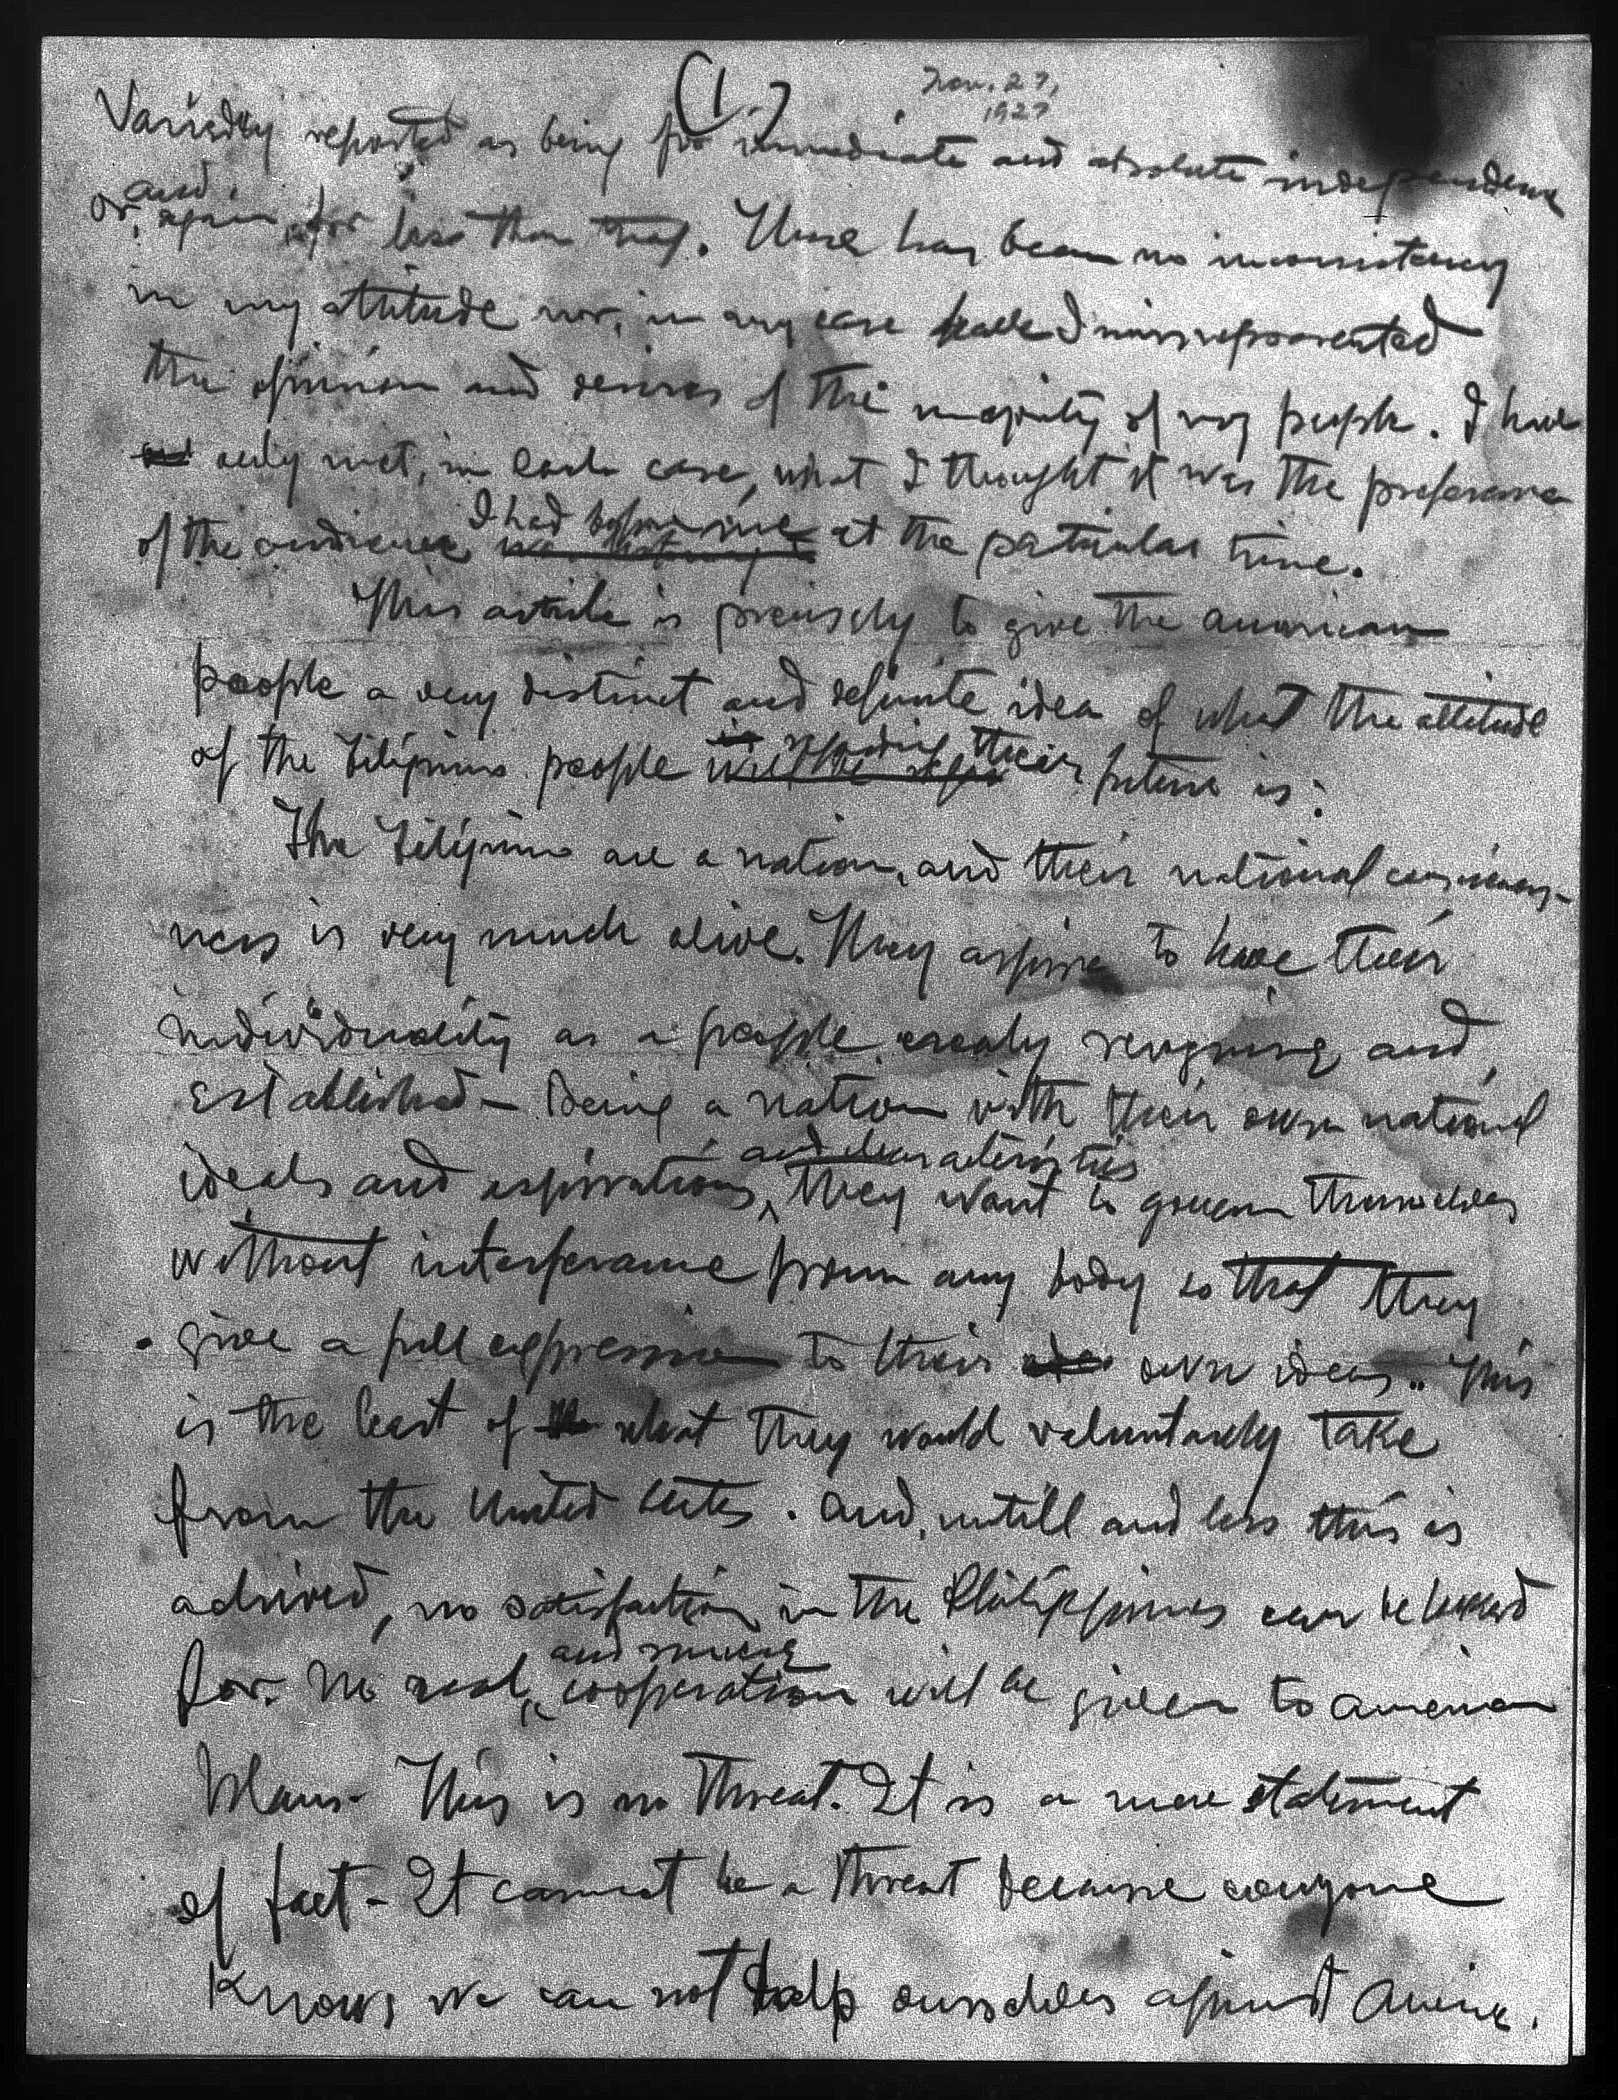 (1.)
Nov. 27,
1927
Variedly reported as being for immediate and absolute independence
and
or, again, for less than that. There has been no inconsistency
in my attitude nor, in any case have I misrepresented
the opinion and desires of the majority of my people. I have
only met, in each case, what I thought it was the preference
I had before me
of the audience at the particular time.
This article is precisely to give the American
people a very distinct and definite idea of what the attitude
of the Filipino people regarding their future is:
The Filipino are a nation, and their national consious-
ness is very much alive. They aspire to have their
individuality as a people and
established - Being a nation with their own national
and characteristics
ideals and aspirations, they want to govern themselves
without interferance from any body so that they
give a full expression to their own ideas. This
is the least of what they would voluntarily take
from the United States. And, untill and less this is
achived, no satisfaction in the Philippines can be looked
and sincere
for. No real cooperation will be given to American
Plans - This is no threat. It is a mere statement
of fact - It cannot be a threat because everyone
Knows we can not help ourselves against